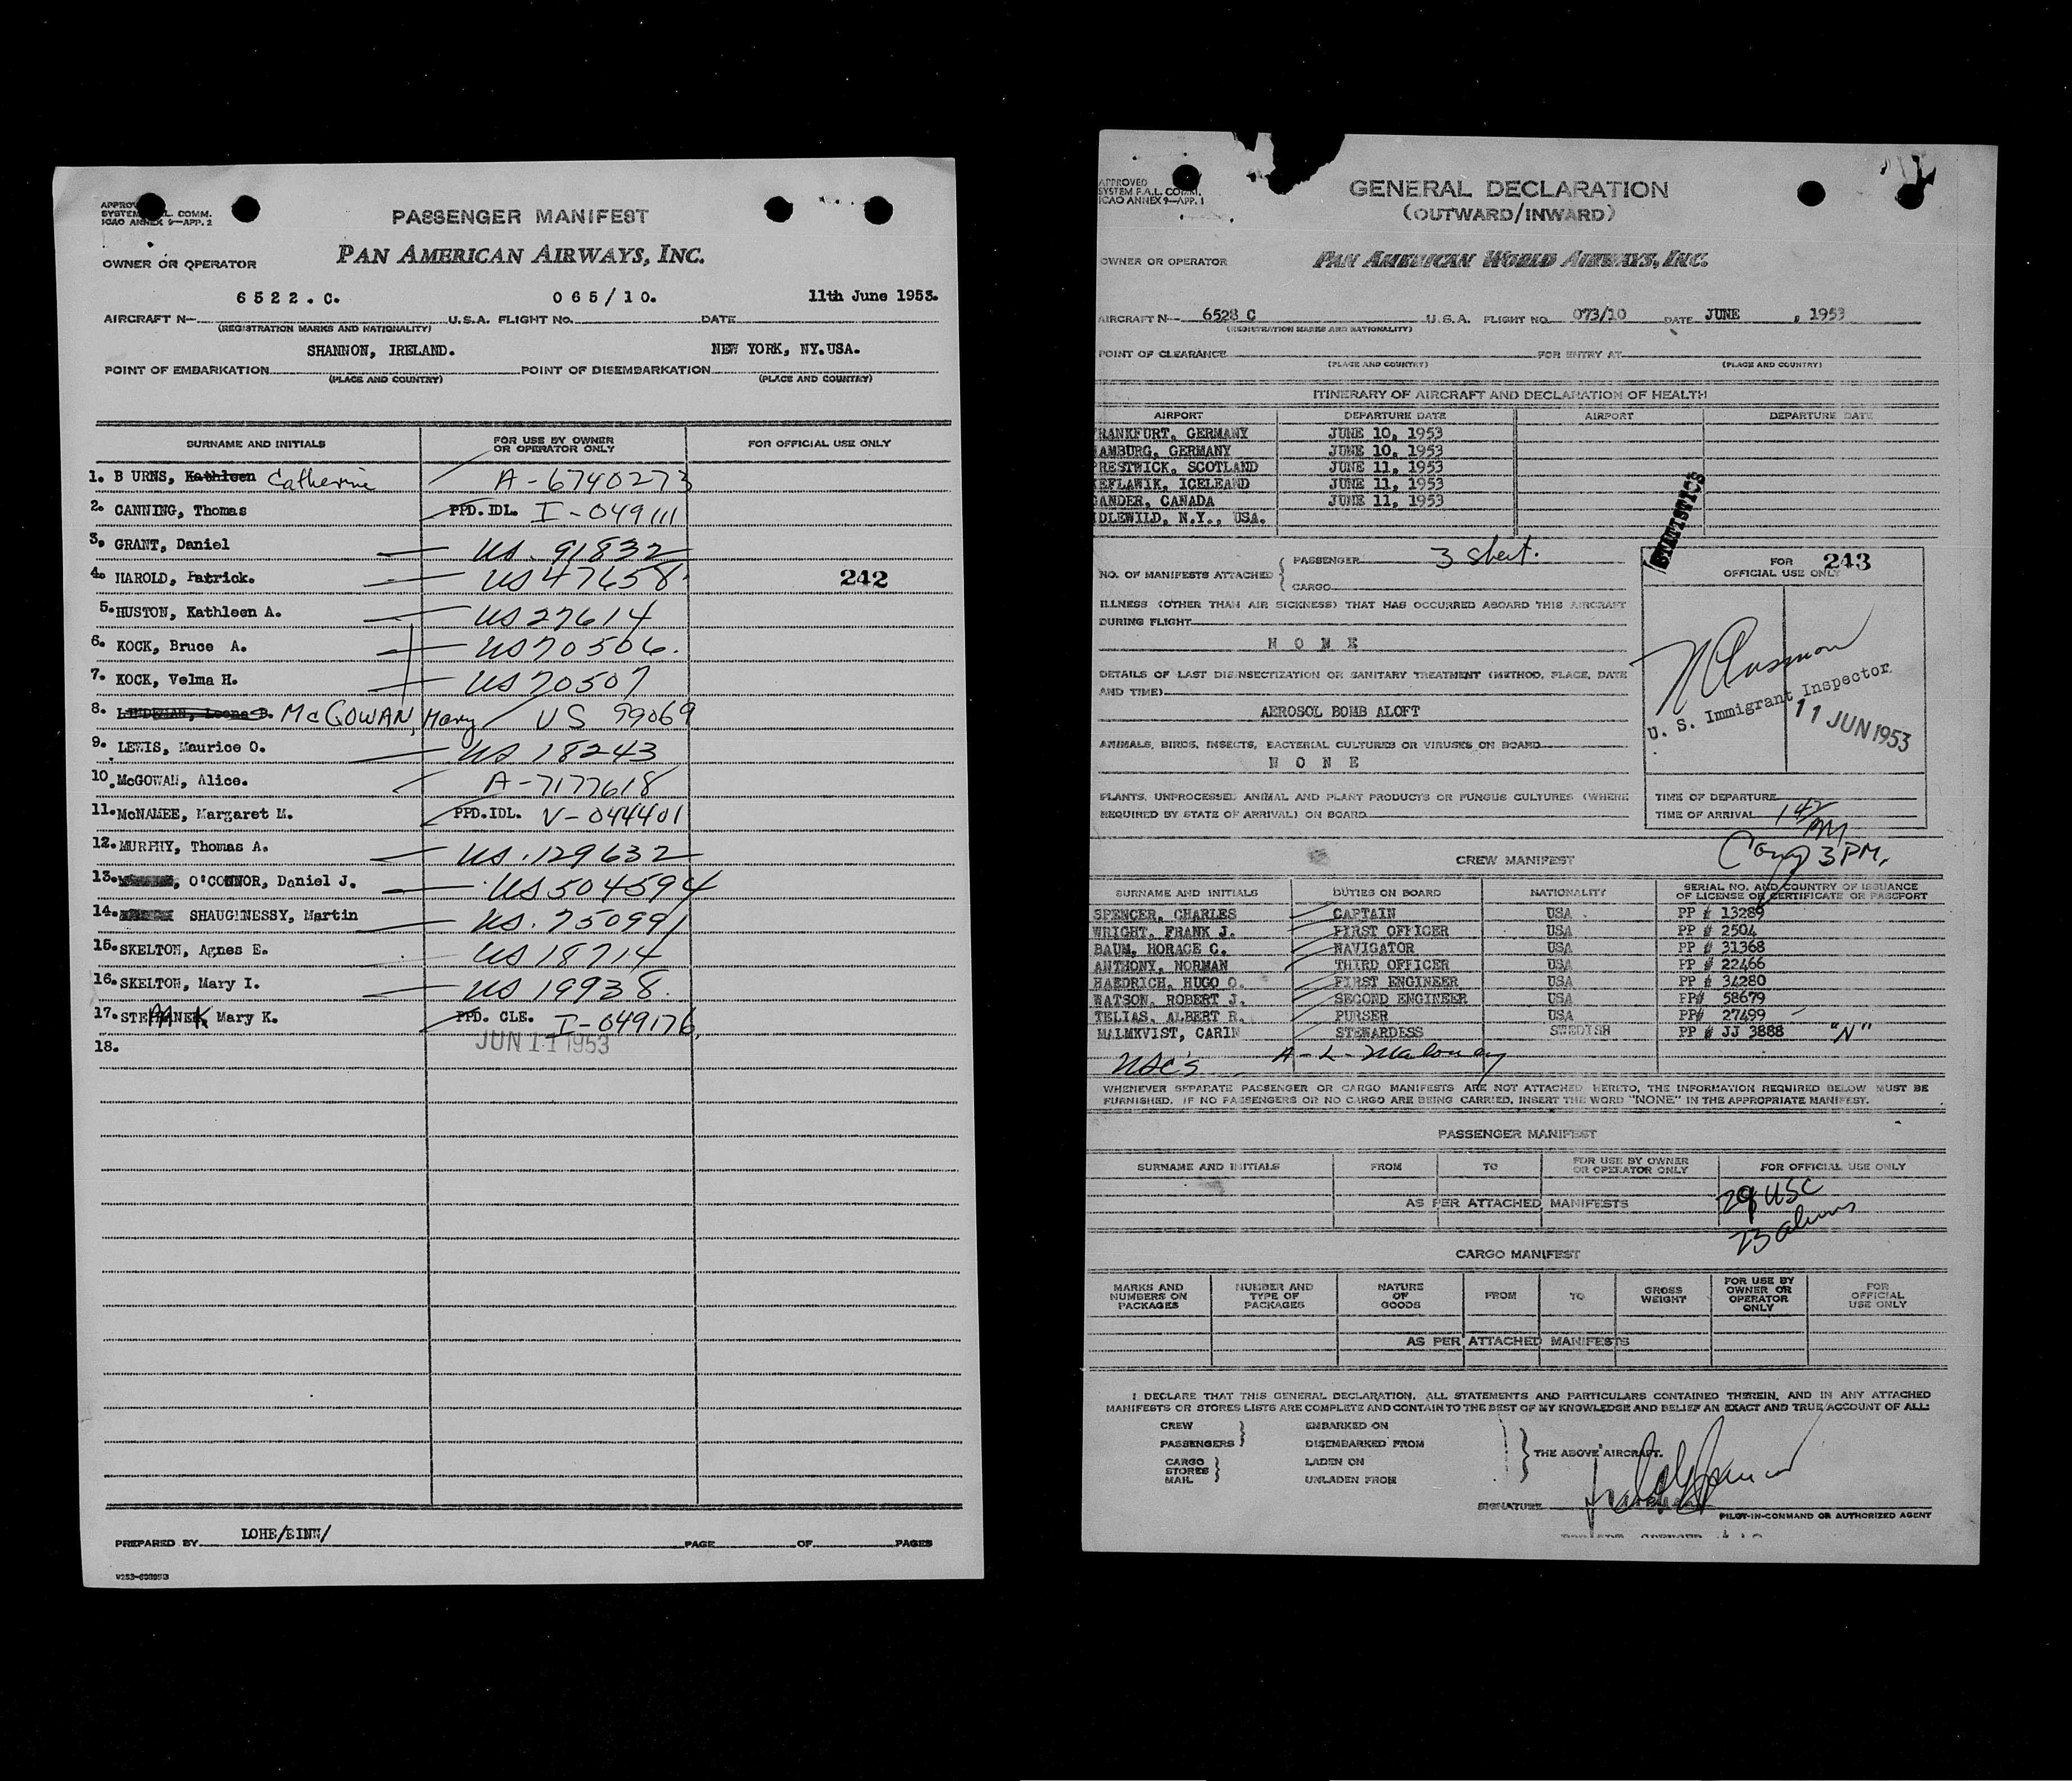 APPROV
SYSTEM L. COMM.
ICAO ANNEX 9—APP. 2
PASSENGER MANIFEST
OWNER OR OPERATOR PAN AMERICAN AIRWAYS, INC.
6522.C. 065/10. 11th June 1953.
AIRCRAFT N— U.S.A. FLIGHT NO. DATE
(REGISTRATION MARKS AND NATIONALITY)
SHANNON, IRELAND. NEW YORK, NY.USA.
POINT OF EMBARKATION POINT OF DISEMBARKATION
(PLACE AND COUNTRY) (PLACE AND COUNTRY)
SURNAME AND INITIALS FOR USE BY OWNER OR OPERATOR ONLY FOR OFFICIAL USE ONLY
1. B URNS, Kathleen Catherine A-6740273
2. CANNING, Thomas PPD.IDL. I-049111
3. GRANT, Daniel US. 91832
4. HAROLD, Patrick. US 47658 242
5. HUSTON, Kathleen A. US 27614
6. KOCK, Bruce A. US 70506.
7. KOCK, Velma H. US 70507
8. McGOWAN, Mary US 99069
9. LEWIS, Maurice O. US 18243
10. McGOWAN, Alice. A-7177618
11. McNAMEE, Margaret M. PPD.IDL. V-044401
12. MURPHY, Thomas A. US.129632
13. , O'CONNOR, Daniel J. US 504594
14. SHAUGHNESSY, Martin US. 75099
15. SKELTON, Agnes E. US 18714
16. SKELTON, Mary I. US 19938.
17. STEPANEK Mary K. PPD. CLE. I-049176
18. JUN 11 1953
LOHE/EINN/
PREPARED BY PAGE OF PAGES
APPROVED
SYSTEM F.A.L. COMM.
ICAO ANNEX 9—APP. 1
GENERAL DECLARATION
(OUTWARD/INWARD)
OWNER OR OPERATOR PAN AMERICAN WORLD AIRWAYS, INC.
AIRCRAFT N— 6528 C U.S.A. FLIGHT NO. 073/10 DATE JUNE , 1953
(REGISTRATION MARKS AND NATIONALITY)
POINT OF CLEARANCE FOR ENTRY AT
(PLACE AND COUNTRY) (PLACE AND COUNTRY)
ITINERARY OF AIRCRAFT AND DECLARATION OF HEALTH
AIRPORT DEPARTURE DATE AIRPORT DEPARTURE DATE
RANKFURT, GERMANY JUNE 10, 1953
AMBURG, GERMANY JUNE 10, 1953
PRESTWICK, SCOTLAND JUNE 11, 1953
KEFLAWIK, ICELEAND JUNE 11, 1953
GANDER, CANADA JUNE 11, 1953
IDLEWILD, N.Y., USA.
STATISTICS
NO. OF MANIFESTS ATTACHED { PASSENGER 3 sheet.
CARGO
FOR 243
OFFICIAL USE ONLY
ILLNESS (OTHER THAN AIR SICKNESS) THAT HAS OCCURRED ABOARD THIS AIRCRAFT
DURING FLIGHT
N O N E
DETAILS OF LAST DISINSECTIZATION OR SANITARY TREATMENT (METHOD, PLACE, DATE
AND TIME)
AEROSOL BOMB ALOFT
U. S. Immigrant Inspector
11 JUN 1953
ANIMALS, BIRDS, INSECTS, BACTERIAL CULTURES OR VIRUSES ON BOARD
N O N E
PLANTS, UNPROCESSED ANIMAL AND PLANT PRODUCTS OR FUNGUS CULTURES (WHERE
REQUIRED BY STATE OF ARRIVAL) ON BOARD
TIME OF DEPARTURE
TIME OF ARRIVAL 142 PM
3 PM.
CREW MANIFEST
SURNAME AND INITIALS DUTIES ON BOARD NATIONALITY SERIAL NO. AND COUNTRY OF ISSUANCE OF LICENSE OR CERTIFICATE OR PASSPORT
SPENCER, CHARLES CAPTAIN USA PP # 13289
WRIGHT, FRANK J. FIRST OFFICER USA PP # 2504
BAUM, HORACE C. NAVIGATOR USA PP # 31368
ANTHONY, NORMAN THIRD OFFICER USA PP # 22466
HAEDRICH, HUGO O. FIRST ENGINEER USA PP # 34280
WATSON, ROBERT J. SECOND ENGINEER USA PP# 58679
TELIAS, ALBERT R. PURSER USA PP# 27499
MALMKVIST, CARIN STEWARDESS SWEDISH PP # JJ 3888 "N"
USC's A-L-Maloney
WHENEVER SEPARATE PASSENGER OR CARGO MANIFESTS ARE NOT ATTACHED HERETO, THE INFORMATION REQUIRED BELOW MUST BE
FURNISHED. IF NO PASSENGERS OR NO CARGO ARE BEING CARRIED, INSERT THE WORD "NONE" IN THE APPROPRIATE MANIFEST.
PASSENGER MANIFEST
SURNAME AND INITIALS FROM TO FOR USE BY OWNER OR OPERATOR ONLY FOR OFFICIAL USE ONLY
AS PER ATTACHED MANIFESTS 29 USC
23 aliens
CARGO MANIFEST
MARKS AND NUMBERS ON PACKAGES NUMBER AND TYPE OF PACKAGES NATURE OF GOODS FROM TO GROSS WEIGHT FOR USE BY OWNER OR OPERATOR ONLY FOR OFFICIAL USE ONLY
AS PER ATTACHED MANIFESTS
I DECLARE THAT THIS GENERAL DECLARATION, ALL STATEMENTS AND PARTICULARS CONTAINED THEREIN, AND IN ANY ATTACHED
MANIFESTS OR STORES LISTS ARE COMPLETE AND CONTAIN TO THE BEST OF MY KNOWLEDGE AND BELIEF AN EXACT AND TRUE ACCOUNT OF ALL:
CREW EMBARKED ON
PASSENGERS DISEMBARKED FROM
THE ABOVE AIRCRAFT.
CARGO LADEN ON
STORES
MAIL UNLADEN FROM
SIGNATURE
PILOT-IN-COMMAND OR AUTHORIZED AGENT